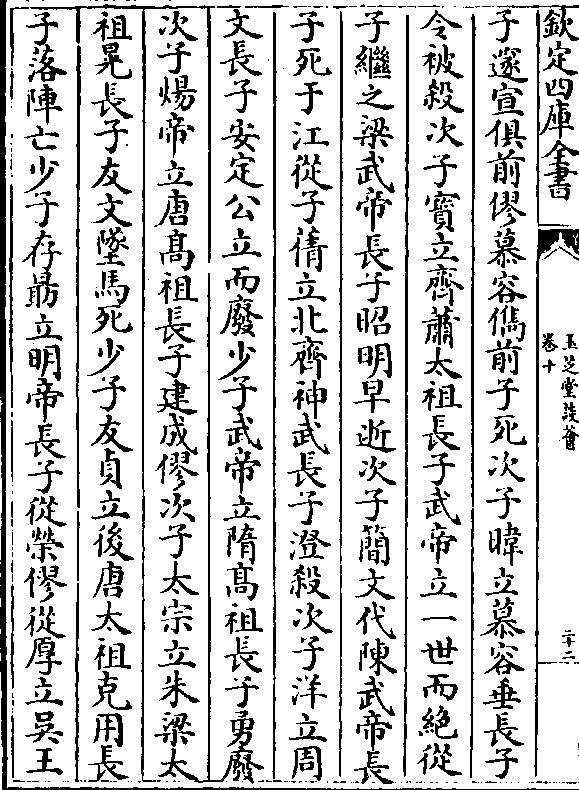 欽定四庫全書
玉芝堂談薈
卷十
二十二
子邃宣俱前僇慕容儁前子死次子暐立慕容垂長子
令被殺次子寳立齊蕭太祖長子武帝立一世而絶從
子繼之梁武帝長子昭明早逝次子簡文代陳武帝長
子死于江從子蒨立北齊神武長子澄殺次子洋立周
文長子安定公立而廢少子武帝立隋髙祖長子勇廢
次子煬帝立唐髙祖長子建成僇次子太宗立朱梁太
祖晃長子友文墜馬死少子友貞立後唐太祖克用長
子落陣亡少子存勗立明帝長子從榮僇從厚立吳王